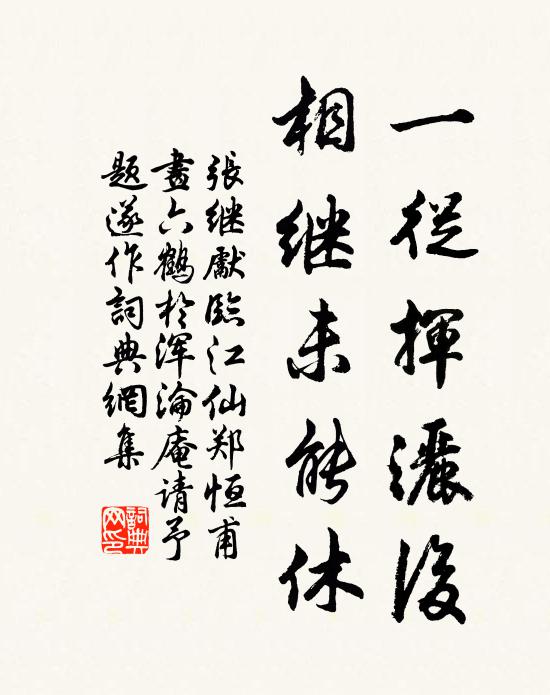 一從揮灑後
相继未能休
張继獻臨江仙郑恒甫
畫六鶴於浑淪庵请予
题遂作詞典網集
詞典网印